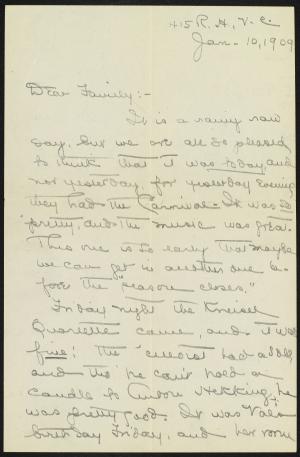 415 R. H., V. C.
Jan. 10, 1909
Dear Family:-
It is a rainy raw
day, but we are all so pleased
to think that it was today and
not yesterday, for yesterday evening
they had the Carnival. It was so
pretty, and the music was great.
This one is so early that maybe
we can get in another one be-
fore the "season closes."
Friday night the Kneisel
Quartette came, and it was
fine! The 'cellist had a
and tho' he can't hold a
candle to Anton Hekking, he
was pretty good. It was
birthday Friday, and her room